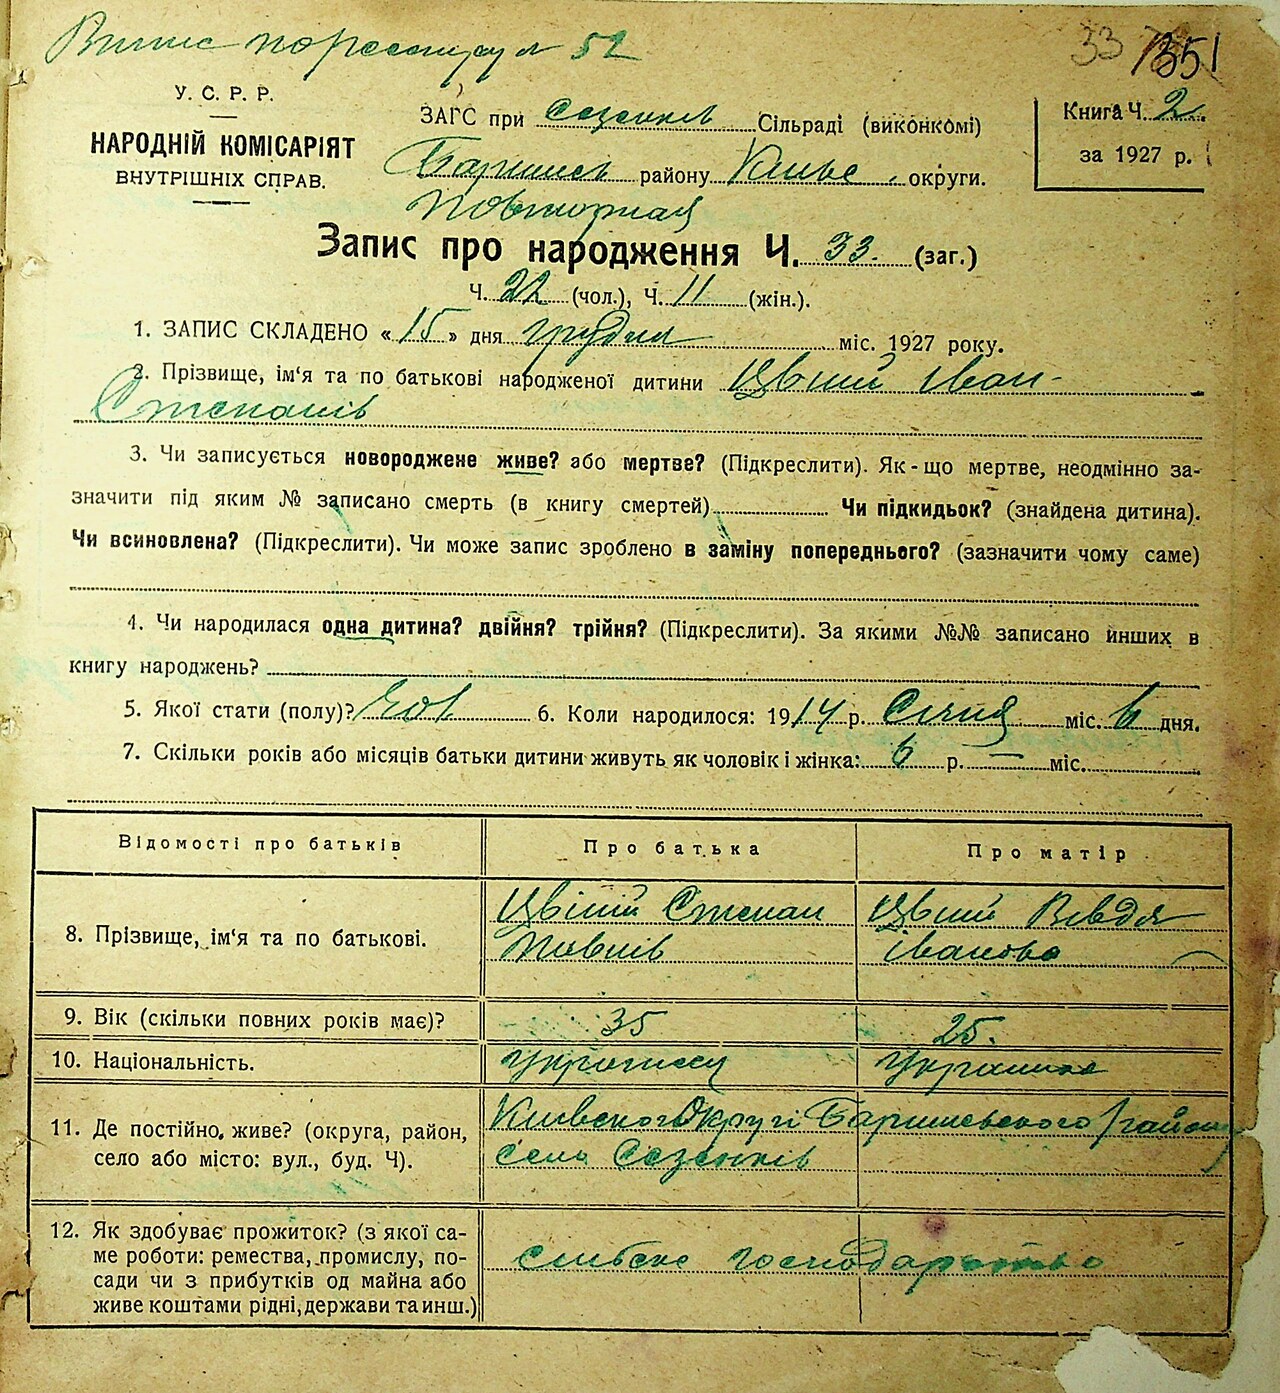 Випис по реестру № 52
33 351
У. С. Р. Р.
НАРОДНІЙ КОМІСАРІЯТ
ВНУТРІШНІХ СПРАВ.
ЗАГС при Сезенків Сільраді (виконкомі)
Баришев району Києвс. округи.
Книга Ч. 2.
за 1927 р.
Повторная
Запис про народження Ч. 33. (заг.)
Ч. 22 (чол.), Ч. 11 (жін.).
1. ЗАПИС СКЛАДЕНО «15» дня грудня міс. 1927 року.
2. Прізвище, ім‘я та по батькові народженої дитини Цвіий Іван
Степанів
3. Чи записується новороджене живе? або мертве? (Підкреслити). Як-що мертве, неодмінно за-
значити під яким № записано смерть (в книгу смертей) Чи підкидьок? (знайдена дитина).
Чи всиновлена? (Підкреслити). Чи може запис зроблено в заміну попереднього? (зазначити чому саме)
4. Чи народилася одна дитина? двійня? трійня? (Підкреслити). За якими №№ записано инших в
книгу народжень?
5. Якої стати (полу)? чол 6. Коли народилося: 1914 р. Січня міс. 6 дня.
7. Скільки років або місяців батьки дитини живуть як чоловік і жінка: 6 р. — міс.
Відомості про батьків Про батька Про матір
8. Прізвище, ім‘я та по батькові.
Степан
Іванова
9. Вік (скільки повних років має)? 35 25.
10. Національність. Украинец Украинка
11. Де постійно живе? (округа, район,
село або місто: вул., буд. Ч).
Киевского Округі Баришевського район
село Сезенків
12. Як здобуває прожиток? (з якої са-
ме роботи: ремества, промислу, по-
сади чи з прибутків од майна або
живе коштами рідні, держави та инш.)
сильске господарство